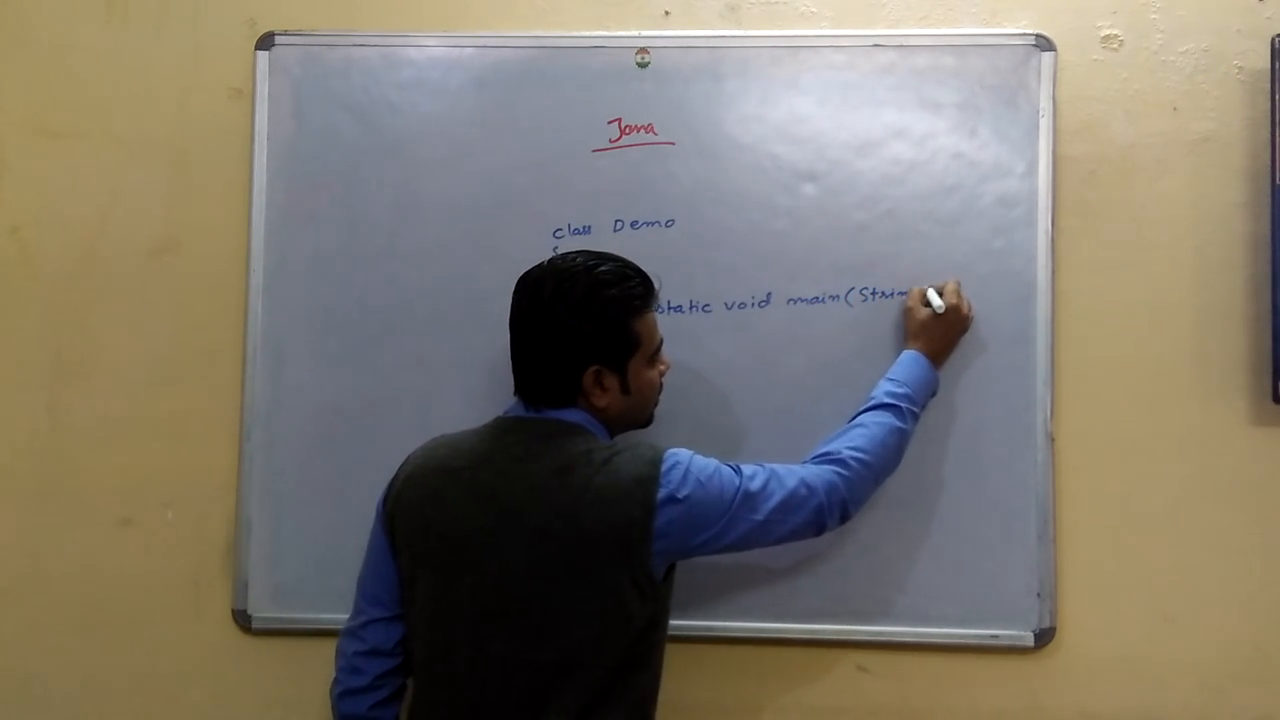 Java
class Demo
{
static void main(Strin